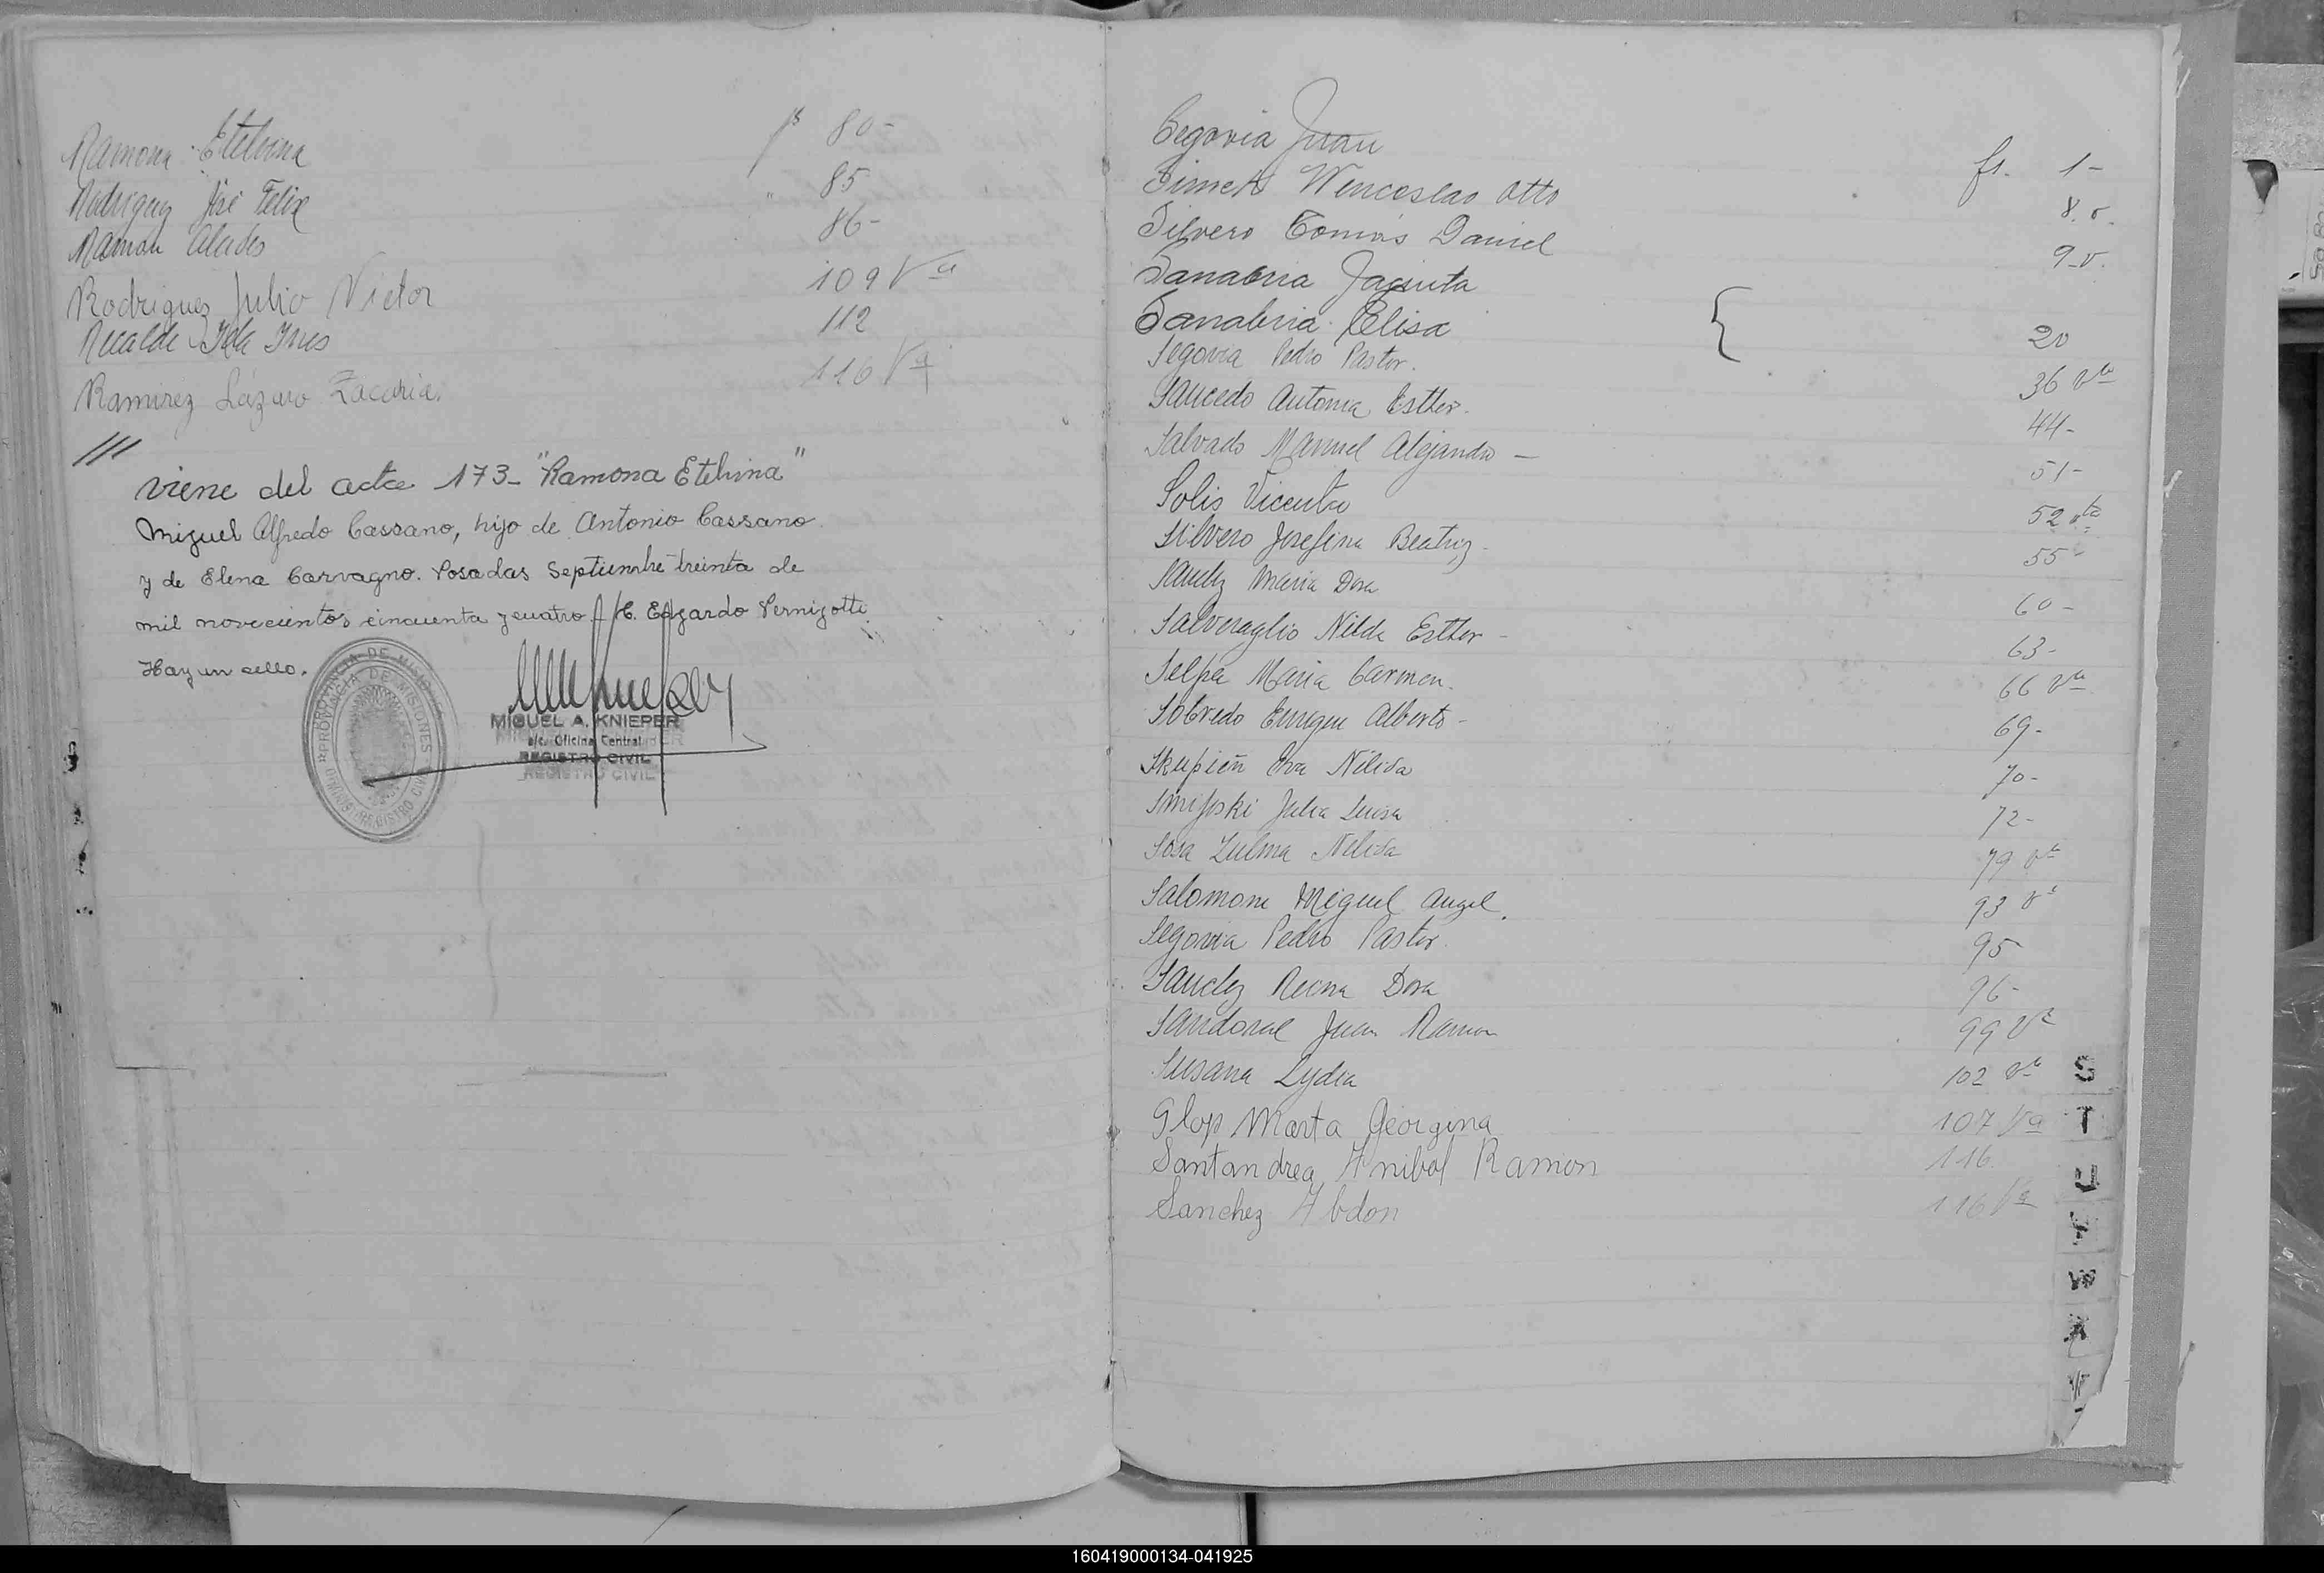 Ramona Etelvina fs 80-
Rodriguez José Felix " 85
Ramon Alcides 86-
Rodriguez Julio Victor 109 Vta
Recalde Ilda Ines 112
Ramirez Lázaro Zacaria. 116 Vta
///
viene del acta 173_ "Ramona Etelvina"
Miguel Alfredo Cassano, hijo de Antonio Cassano
y de Elena Carvagno. Posadas Septiembre treinta de
mil novecientos cincuenta y cuatro. H. Edgardo Pernigotti.
Hay un sello.
PROVINCIA DE MISIONES
REGISTRO CIVIL
MIGUEL A. KNIEPER
a/c. Oficina Central
REGISTRO CIVIL
Segovia Juan fs. 1-
Wenceslao Otto 8.v.
Silvero Tomás Daniel 9-v.
Sanabria Jacinta
Sanabria Elisa { 20
Segovia Pedro Pastor. 36 vta
Saucedo Antonia Esther. 44-
Salvado Manuel Alejandro — 51-
Solis Vicenta 52 vta
Silvero Josefina Beatriz 55
Sanchez Maria Dora 60-
Salveraglio Nilda Esther - 63-
Selpa Maria Carmen. 66 Vta
Sobredo Enrique Alberto - 69-
Skupieñ Eva Nélida 70-
Julia Luisa 72-
Sosa Zulma Nelida 79 vta
Salomone Miguel Angel. 93 vta
Segovia Pedro Pastor. 95
Sanchez Dora 96-
Sandoval Juan Ramon 99 Vta
Susana Lydia 102 vta
Glop Marta Georgina 107 Vta
Santandrea Anibal Ramon 116
Sanchez Abdon 116 Vta
S
T
U
W
160419000134-041925